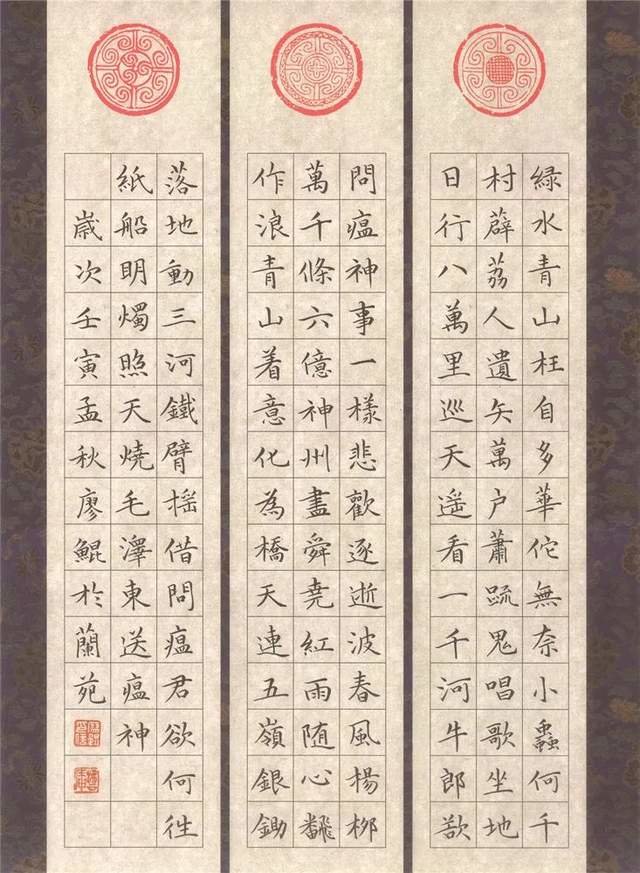 緑水青山枉自多華佗無奈小蟲何千
村薜荔人遺矢萬户蕭疏鬼唱歌坐地
日行八萬里巡天遥看一千河牛郎欲
問瘟神事一樣悲歡逐逝波春風楊柳
萬千條六億神州盡舜堯紅雨随心飜
作浪青山着意化為橋天連五嶺銀鋤
落地動三河鐵臂摇借問瘟君欲何往
紙船明燭照天燒毛澤東送瘟神
歲次壬寅孟秋廖鯤於蘭苑